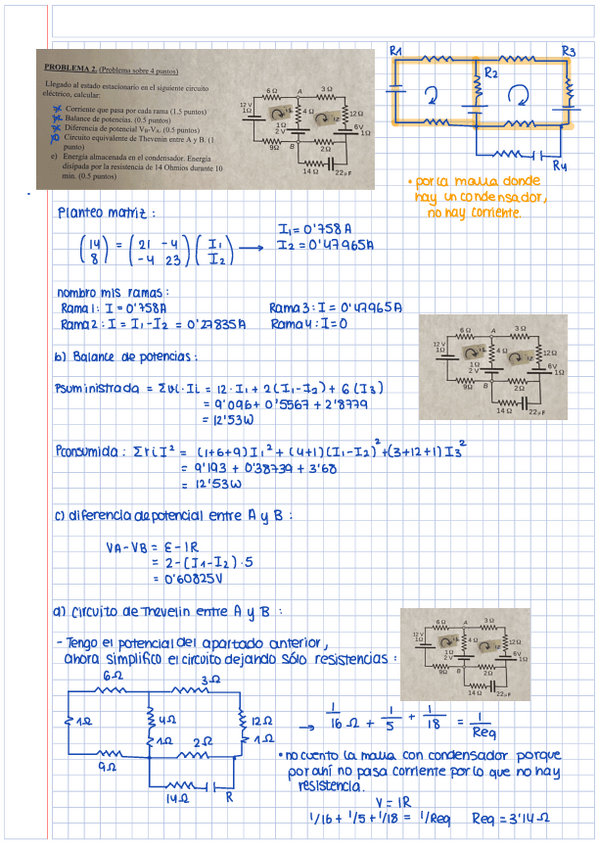 PROBLEMA 2. (Problema sobre 4 puntos)
Llegado al estado estacionario en el siguiente circuito
eléctrico, calcular:
Corriente que pasa por cada rama (1.5 puntos)
Balance de potencias. (0.5 puntos)
Diferencia de potencial VB-VA. (0.5 puntos)
Circuito equivalente de Thevenin entre A y B. (1
punto)
e) Energía almacenada en el condensador. Energía
disipada por la resistencia de 14 Ohmios durante 10
min. (0.5 puntos)
6Ω A 3Ω
12 V
1Ω
4Ω
12Ω
1Ω
2 V
6V
1Ω
9Ω B 2Ω
14Ω 22μF
R1
R2
R3
R4
• por la malla donde
hay un condensador,
no hay corriente.
Planteo matriz :
(14 8) = (21 -4 -4 23) (I1 I2) →
I1 = 0'758A
I2 = 0'47965A
nombro mis ramas:
Rama 1: I = 0'758A
Rama 3: I = 0'47965A
Rama 2: I = I1-I2 = 0'27835A
Rama 4: I=0
b) Balance de potencias:
Psuministrada = Σvi·Ii = 12·I1 + 2(I1-I2) + 6(I3)
= 9'096 + 0'5567 + 2'8779
= 12'53W
Pconsumida : ΣriI² = (1+6+9)I1² + (4+1)(I1-I2)² + (3+12+1)I3²
= 9'193 + 0'38739 + 3'68
= 12'53W
6Ω A 3Ω
12 V
1Ω
4Ω
12Ω
1Ω
2 V
6V
1Ω
9Ω B 2Ω
14Ω 22μF
c) diferencia de potencial entre A y B :
VA-VB = ε-IR
= 2-(I1-I2)·5
= 0'60825V
d) Circuito de Thevelin entre A y B :
- Tengo el potencial del apartado anterior,
ahora simplifico el circuito dejando sólo resistencias :
6Ω A 3Ω
12 V
1Ω
4Ω
12Ω
1Ω
2 V
6V
1Ω
9Ω B 2Ω
14Ω 22μF
6Ω
3Ω
1Ω
4Ω
12Ω
1Ω
2Ω
1Ω
9Ω
14Ω
R
→ 1/16Ω + 1/5 + 1/18 = 1/Req
• no cuento la malla con condensador porque
por ahí no pasa corriente por lo que no hay
resistencia.
V = IR
1/16 + 1/5 + 1/18 = 1/Req Req = 3'14Ω